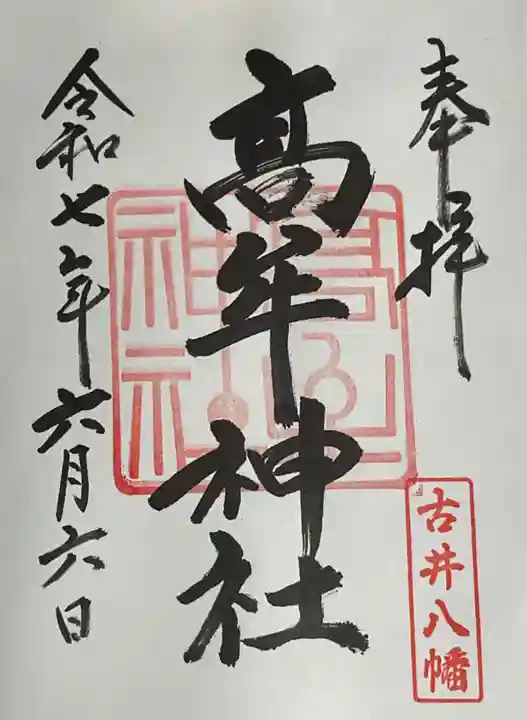 奉拝
髙年神社
令和七年六月六日
古井八幡